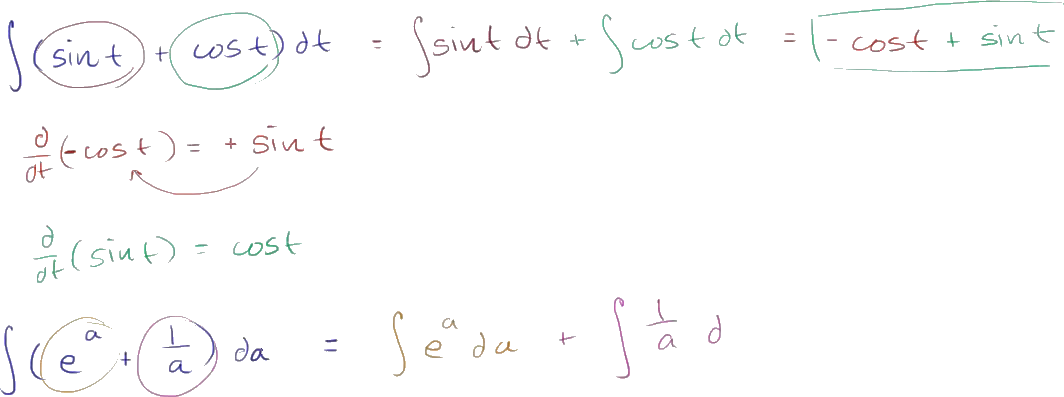 ∫(sin t + cos t) dt = ∫sin t dt + ∫cos t dt = - cos t + sin t
d/dt (-cos t) = + sin t
d/dt (sin t) = cos t
∫(e^a + 1/a) da = ∫e^a da + ∫ 1/a d